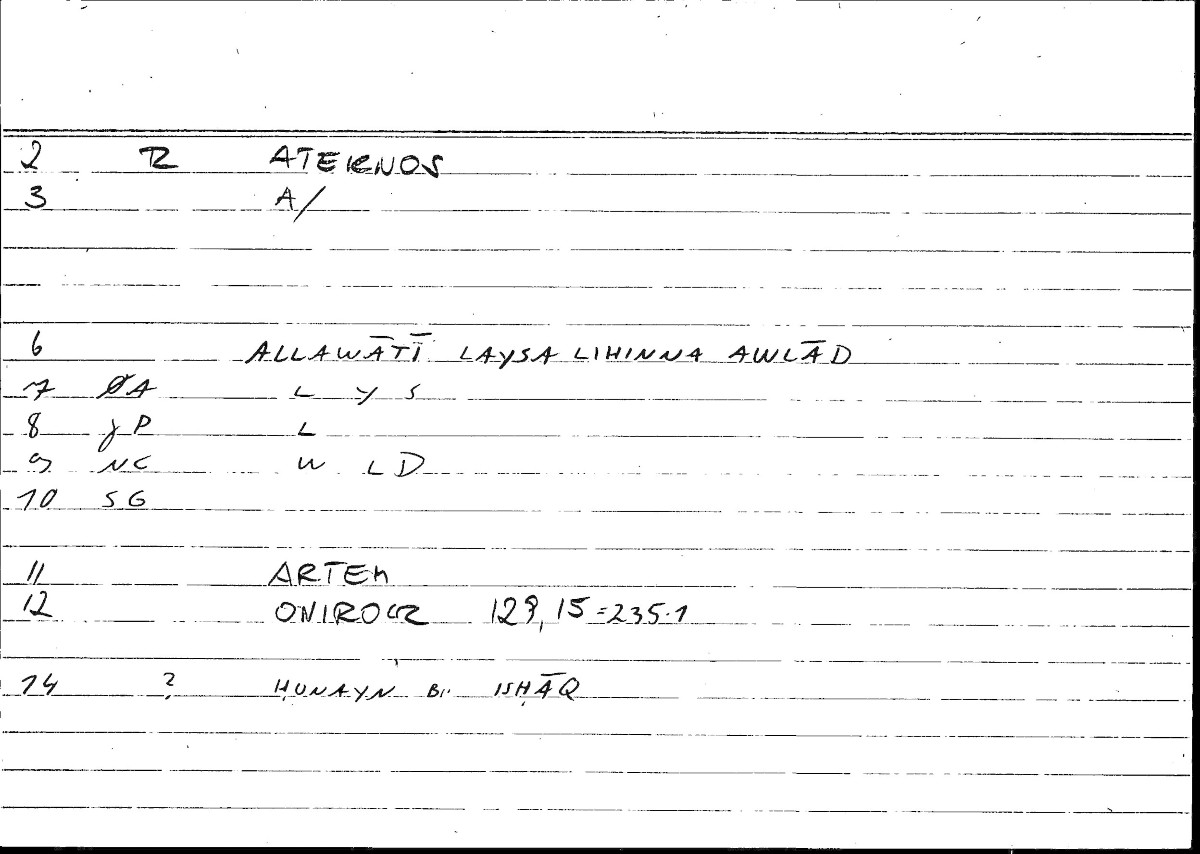 2 R ATEKNOS
3 A/
6 ALLAWĀTĪ LAYSA LIHINNA AWLĀD
7 ØA L Y S
8 JP L
9 NC W L D
10 SG
11 ARTEM
12 ONIROCR 129, 15 = 235.1
14 ? ḤUNAYN B. ISḤĀQ